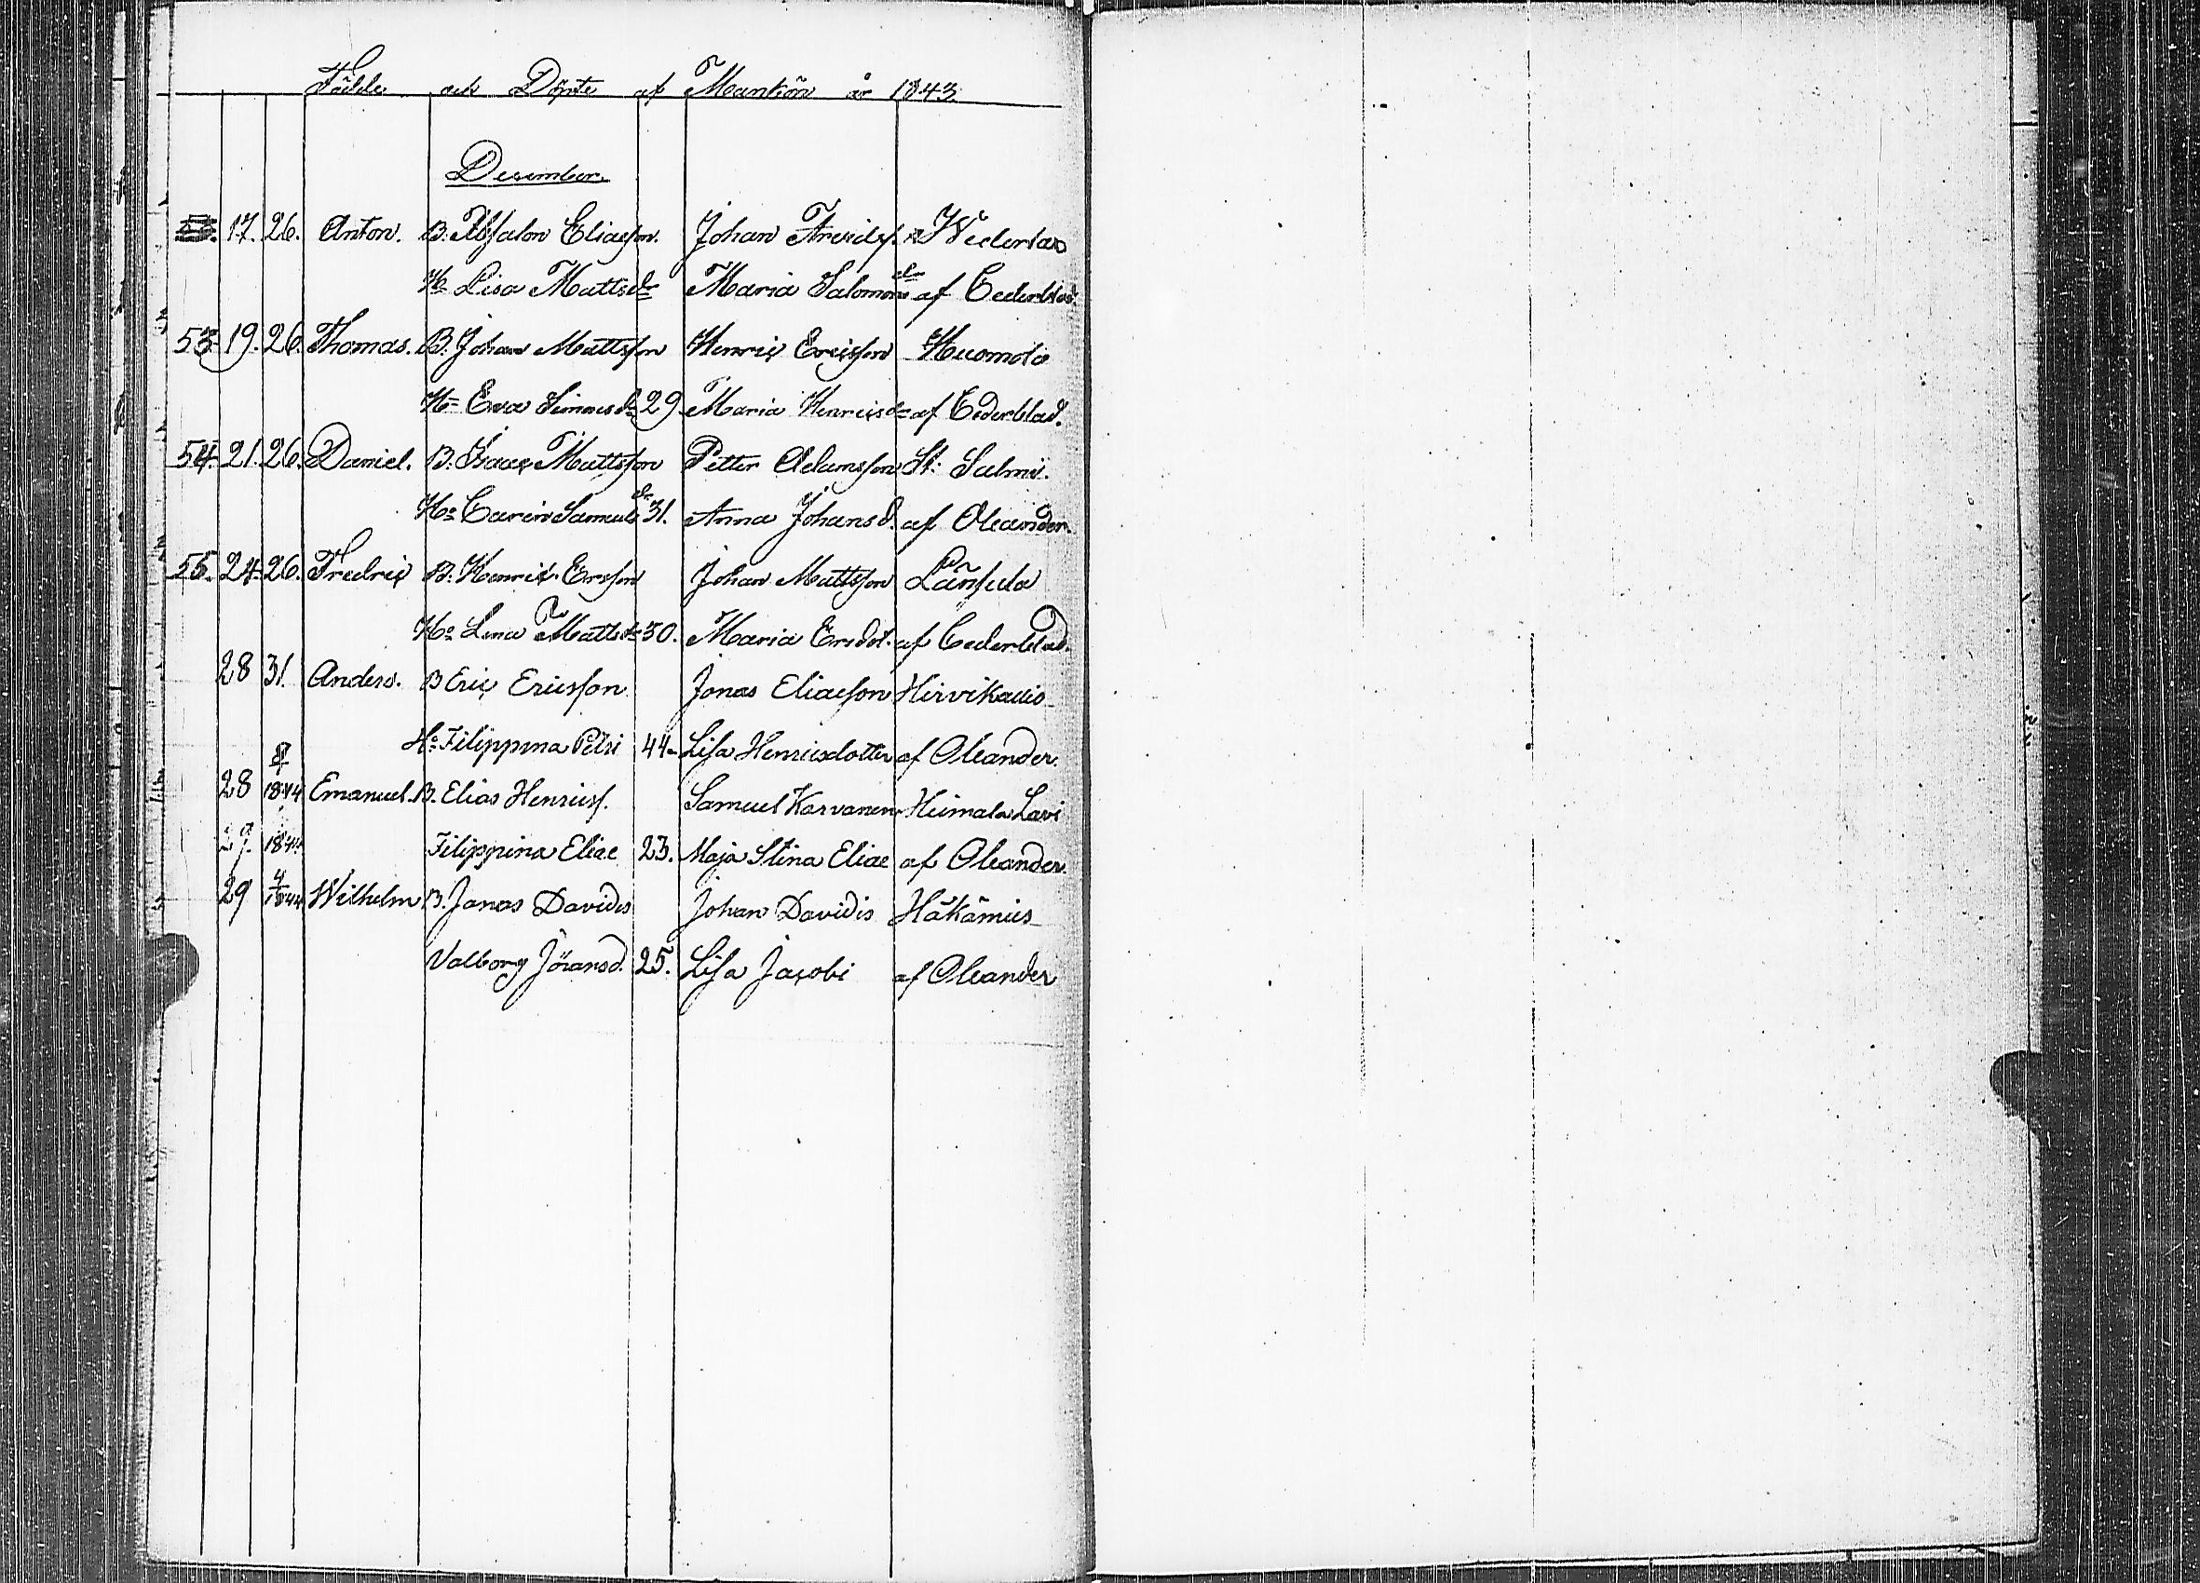 Födde och Döpte af Mankön år 1843.
December.
17. 26. Anton. B. Absalon Eliasson. Johan Arvidss. Wederlax
Hu Lisa Mattsdr Maria Salomonsdr af Cederblad.
53. 19. 26. Thomas. B. Johan Mattsson Henric Ericsson Huomola
Hu Eva Simonsdr 29 Maria Henricsdr af Cederblad.
54. 21. 26. Daniel. B. Isaac Mattsson Petter Adamsson St: Salmi.
Hu Carin Samuelsdr 31. Anna Johansd. af Oleander.
55. 24. 26. Fredric B. Henric Ersson Johan Mattsson Länsula
Hu Lena Mattsdr 30. Maria Ersdot. af Cederblad.
28 31. Anders. B Eric Ericsson Jonas Eliasson Hirvikallio
Hu Filippina Petri 44 Lisa Henricsdotter af Oleander.
28 1844 Emanuel. B. Elias Henricss. Samuel Karvanen Heimala Lavi
1844 Filippina Eliae 23. Maja Stina Eliae af Oleander.
29 4/1844 Wilhelm B. Jonas Davidis Johan Davidis Häkämies
Valborg Jöransd. 25. Lisa Jacobi af Oleander